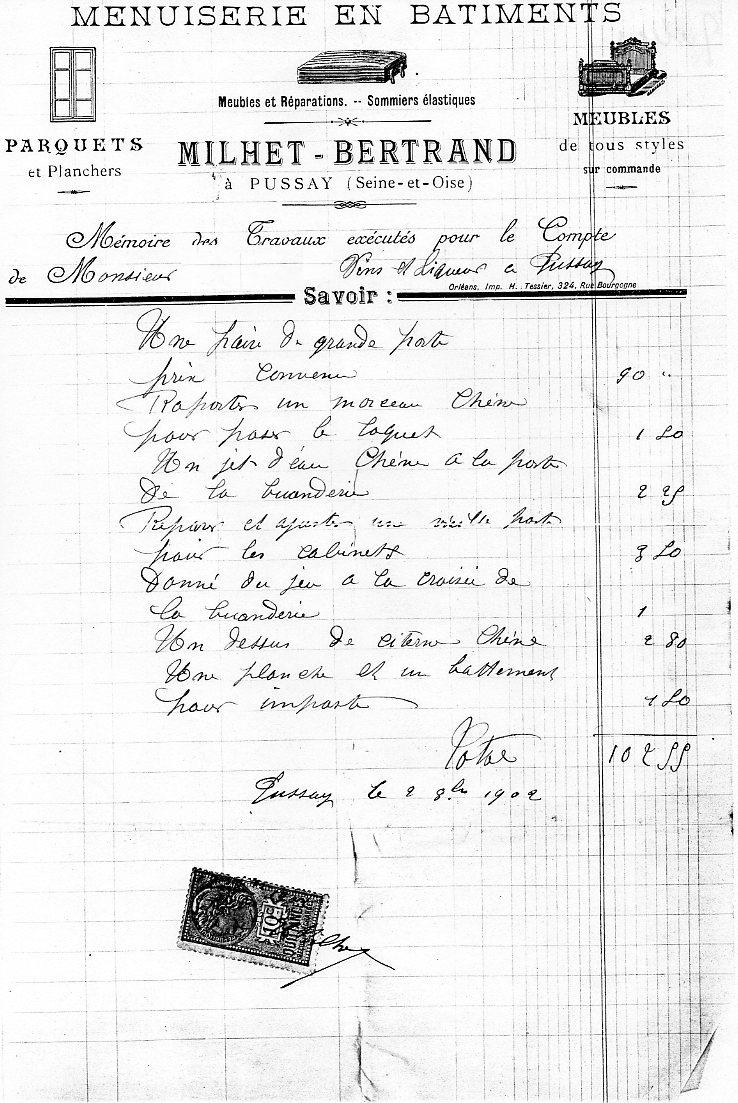 MENUISERIE EN BATIMENTS
Meubles et Réparations. -- Sommiers élastiques
PARQUETS
et Planchers
MILHET-BERTRAND
à PUSSAY (Seine-et-Oise)
MEUBLES
de tous styles
sur commande
Mémoire des Travaux exécutés pour le Compte
de Monsieur Vins et Liqueur a Pussay
Savoir :
Orléans, Imp. H. Tessier, 324, Rue Bourgogne
Une paire de grande porte
prix convenu 90 "
Raporter un morceau Chêne
pour poser le loquet 1 50
Un jet d'eau Chêne a la porte
de la buanderie 2 25
Reparer et ajuster une vieille porte
pour les cabinets 3 50
Donné du jeu a la croisée de
la buanderie 1
Un dessus de citerne Chêne 2 80
Une planche et un battement
pour imposte 1 50
Total 102 55
Pussay le 2 8bre 1902
10c
QUITTANCES
Milhet